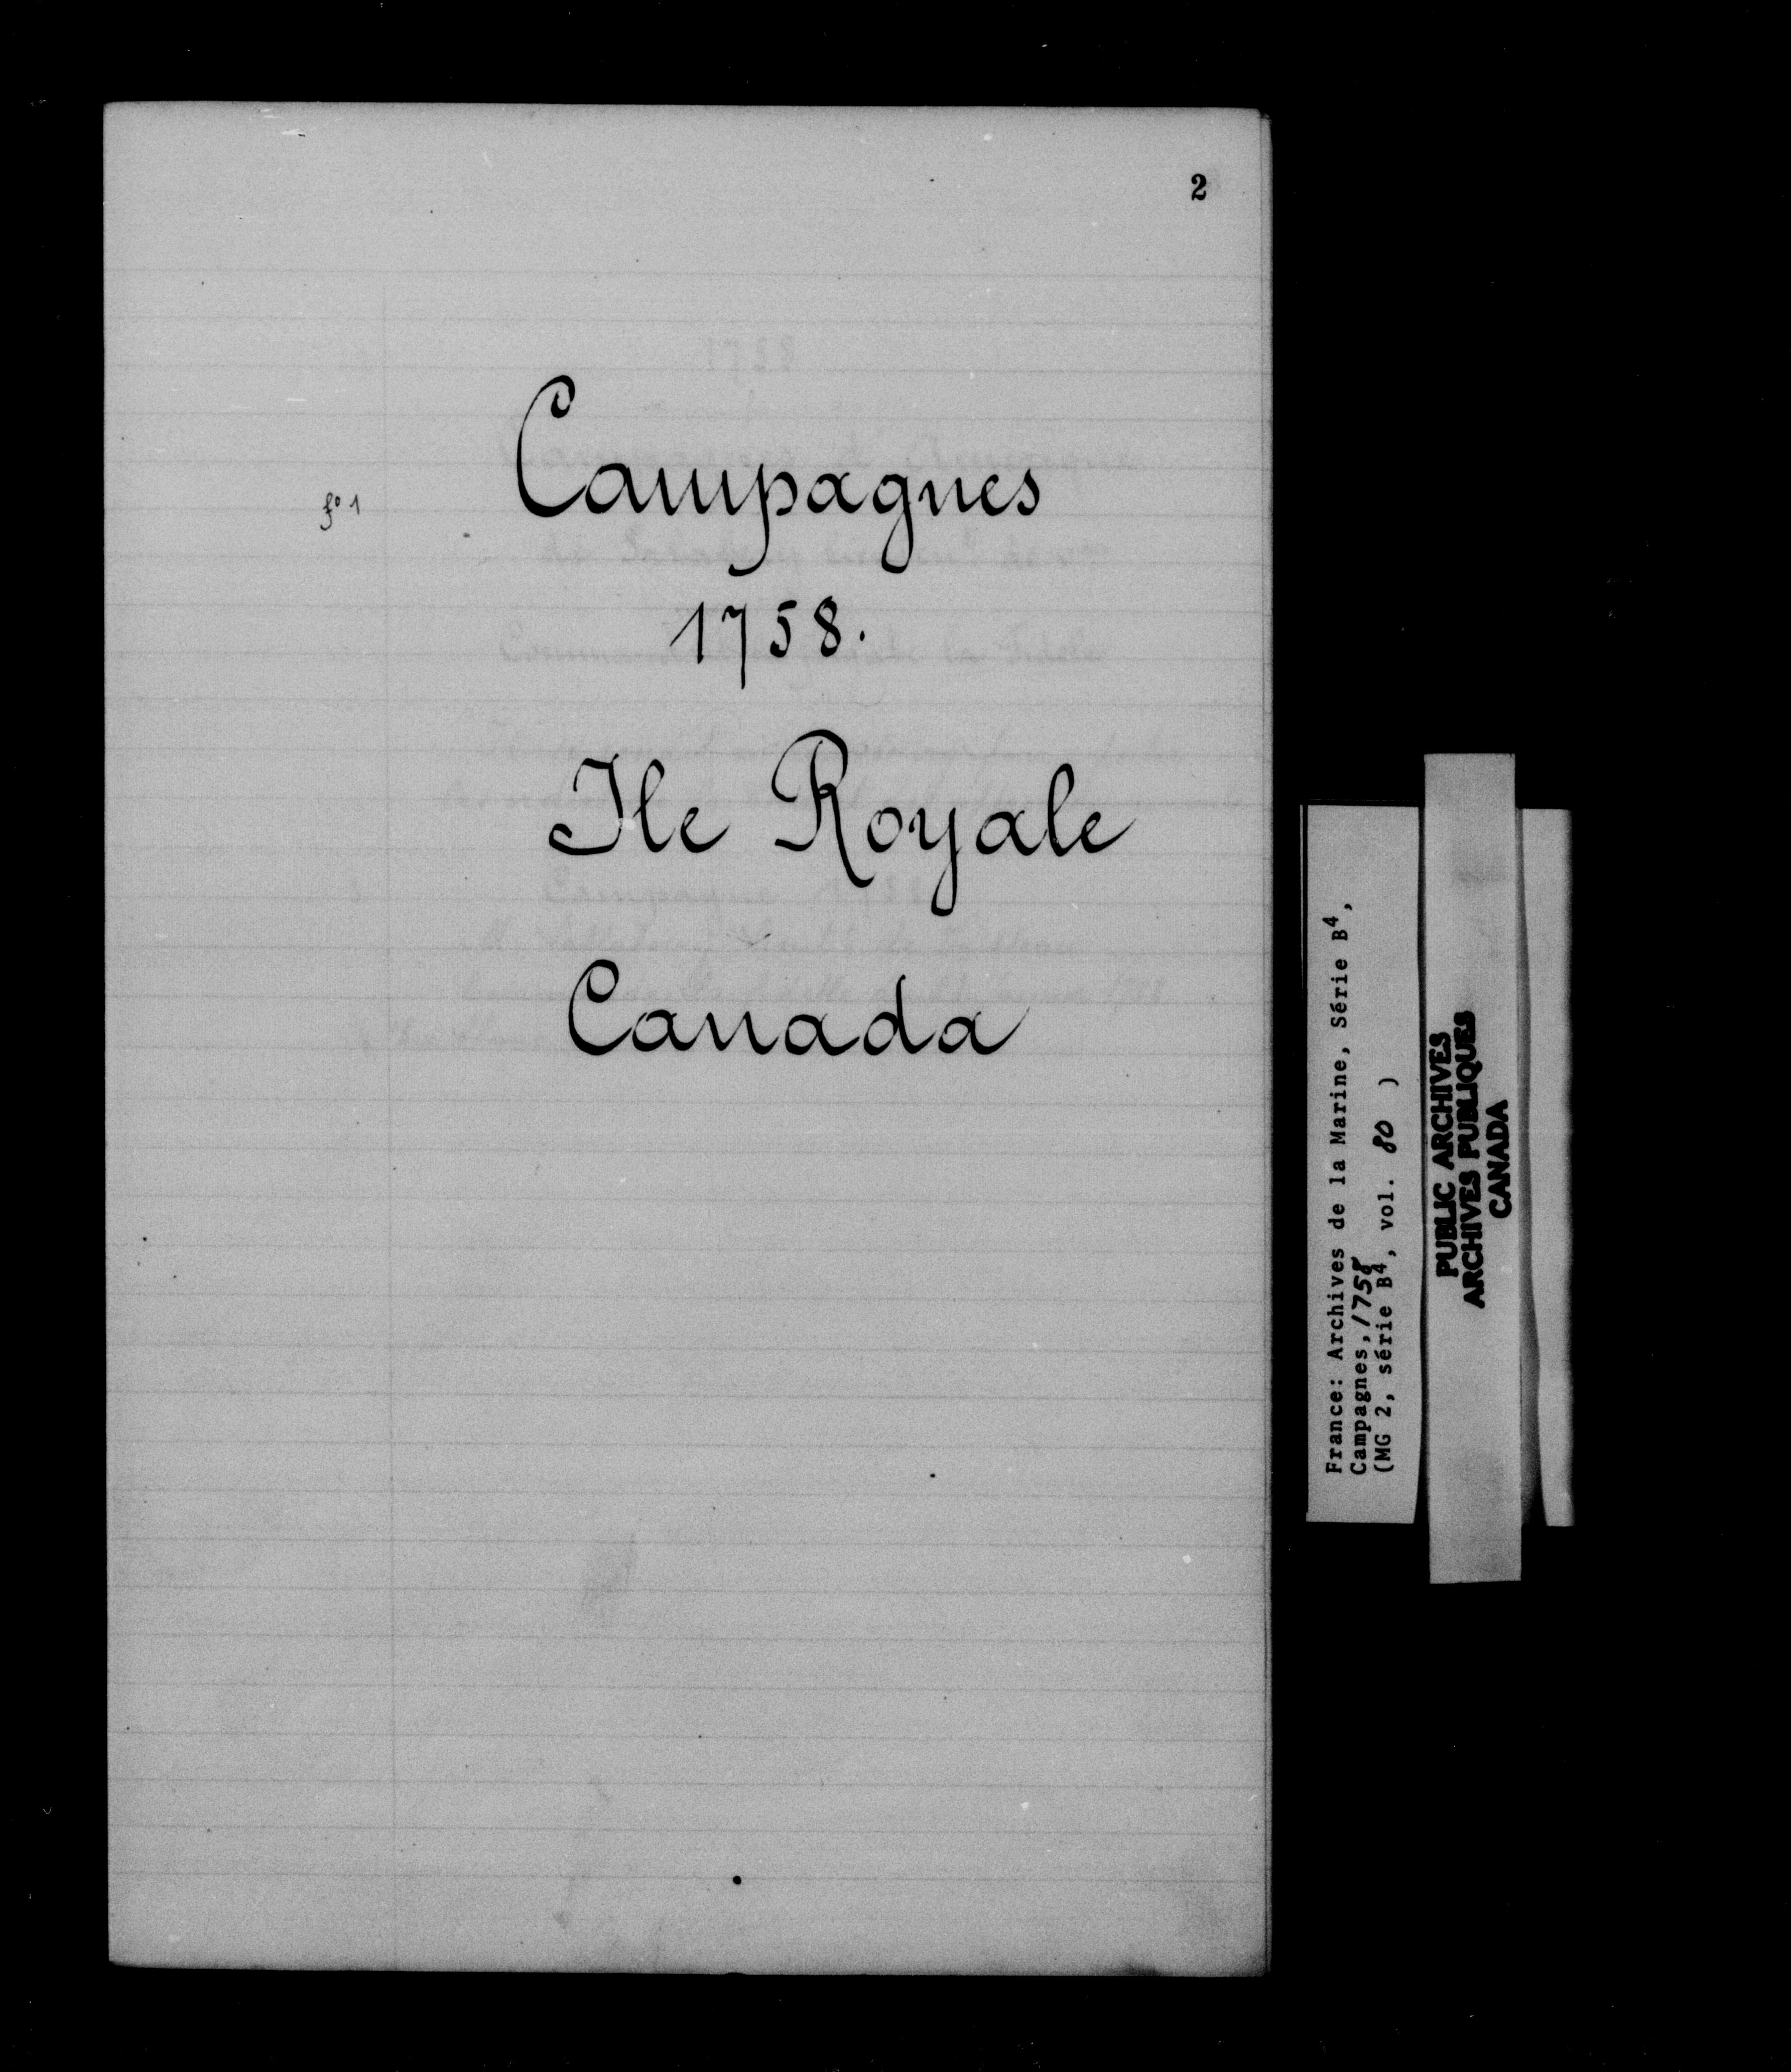 2
f° 1
Campagnes
1758.
Ile Royale
Canada
France: Archives de la Marine, Série B4,
Campagnes, 1758
(MG 2, série B4, vol. 80 )
PUBLIC ARCHIVES
ARCHIVES PUBLIQUES
CANADA